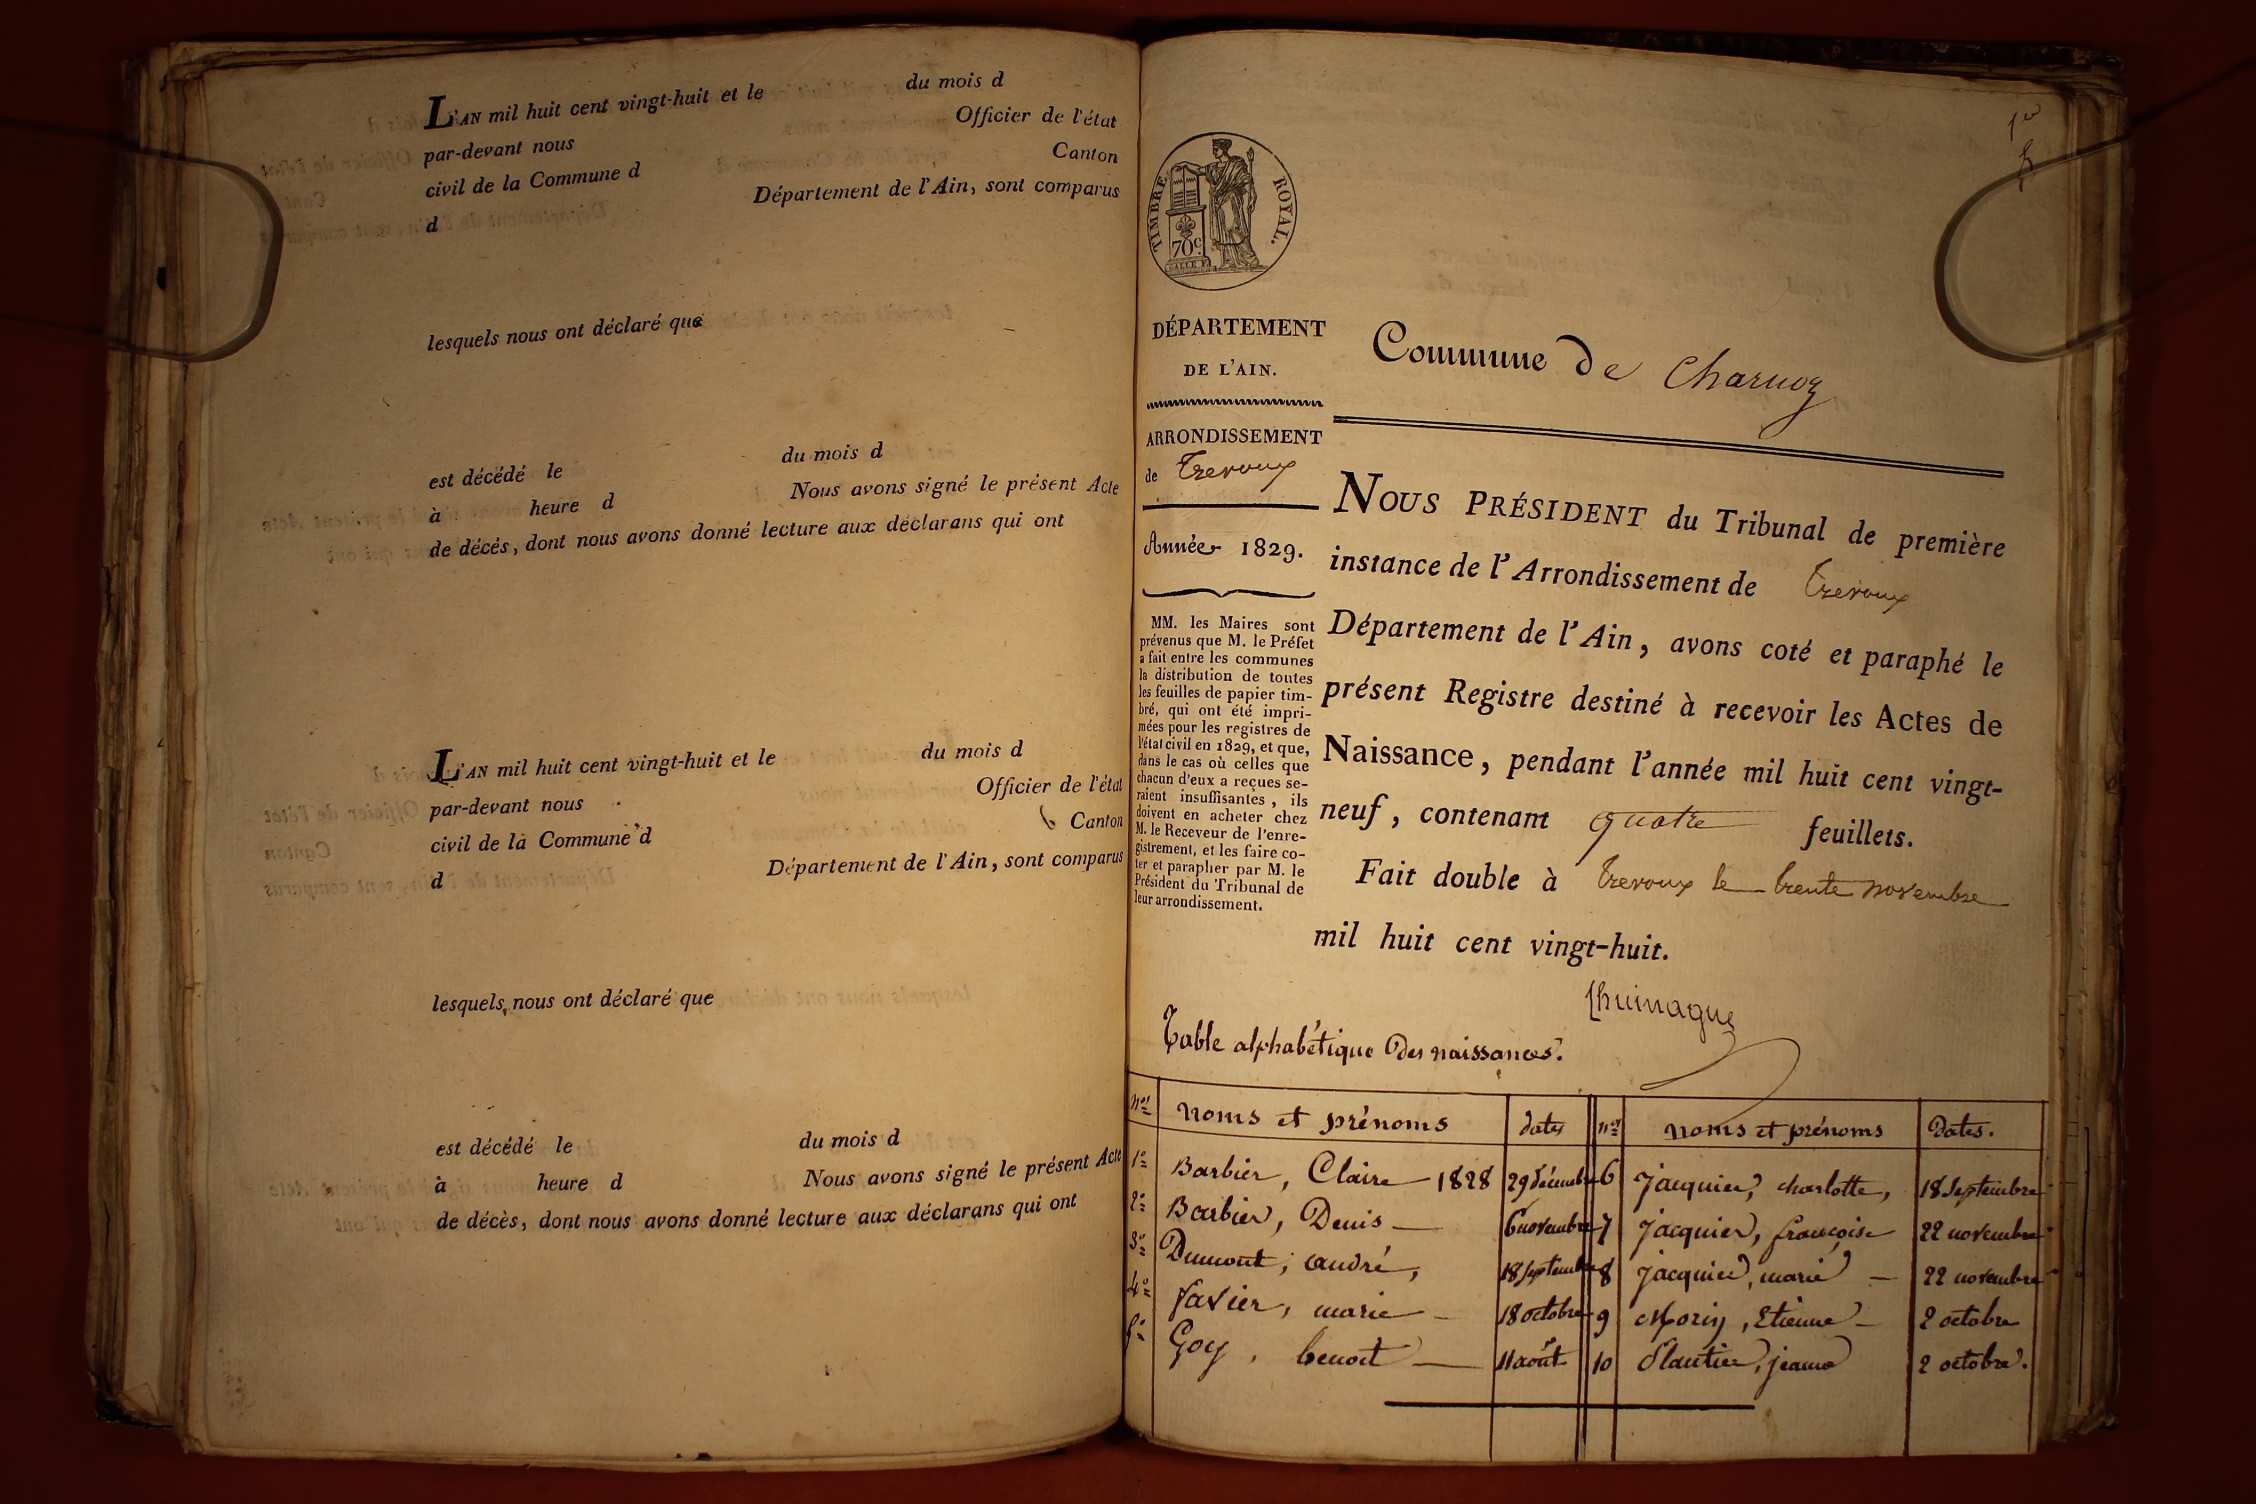 L'AN mil huit cent vingt-huit et le du mois d
par-devant nous Officier de l'état
civil de la Commune d Canton
d Département de l'Ain, sont comparus
lesquels nous ont déclaré que
est décédé le du mois d
à heure d Nous avons signé le présent Acte
de décés, dont nous avons donné lecture aux déclarans qui ont
L'AN mil huit cent vingt-huit et le du mois d
par-devant nous Officier de l'état
civil de la Commune d Canton
d Département de l'Ain, sont comparus
lesquels nous ont déclaré que
est décédé le du mois d
à heure d Nous avons signé le présent Acte
de décès, dont nous avons donné lecture aux déclarans qui ont
1er
TIMBRE ROYAL.
70c.
DÉPARTEMENT
DE L'AIN.
ARRONDISSEMENT
de Trevoux
Année 1829.
MM. les Maires sont
prévenus que M. le Préfet
a fait entre les communes
la distribution de toutes
les feuilles de papier tim-
bré, qui ont été impri-
mées pour les registres de
l'état civil en 1829, et que,
dans le cas où celles que
chacun d'eux a reçues se-
raient insuffisantes, ils
doivent en acheter chez
M. le Receveur de l'enre-
gistrement, et les faire co-
ter et parapher par M. le
Président du Tribunal de
leur arrondissement.
Commune de Charnoz
NOUS PRÉSIDENT du Tribunal de première
instance de l'Arrondissement de Trevoux
Département de l'Ain, avons coté et paraphé le
présent Registre destiné à recevoir les Actes de
Naissance, pendant l'année mil huit cent vingt-
neuf, contenant quatre feuillets.
Fait double à Trevoux le trente novembre
mil huit cent vingt-huit.
Table alphabétique des naissances.
nos noms et prénoms dates nos noms et prénoms Dates.
1o Barbier, Claire 1828 29 décembre 6 Jacquier, charlotte, 18 Septembre
2o Barbier, Denis 6 novembre 7 Jacquier, françoise 22 novembre
3o Dumont, andré, 18 septembre 8 Jacquier, marie 22 novembre
4o favier, marie 18 octobre 9 Morin, Etienne 2 octobre
5o Goy, benoit 11 août 10 Plantier, jeanne 2 octobre.